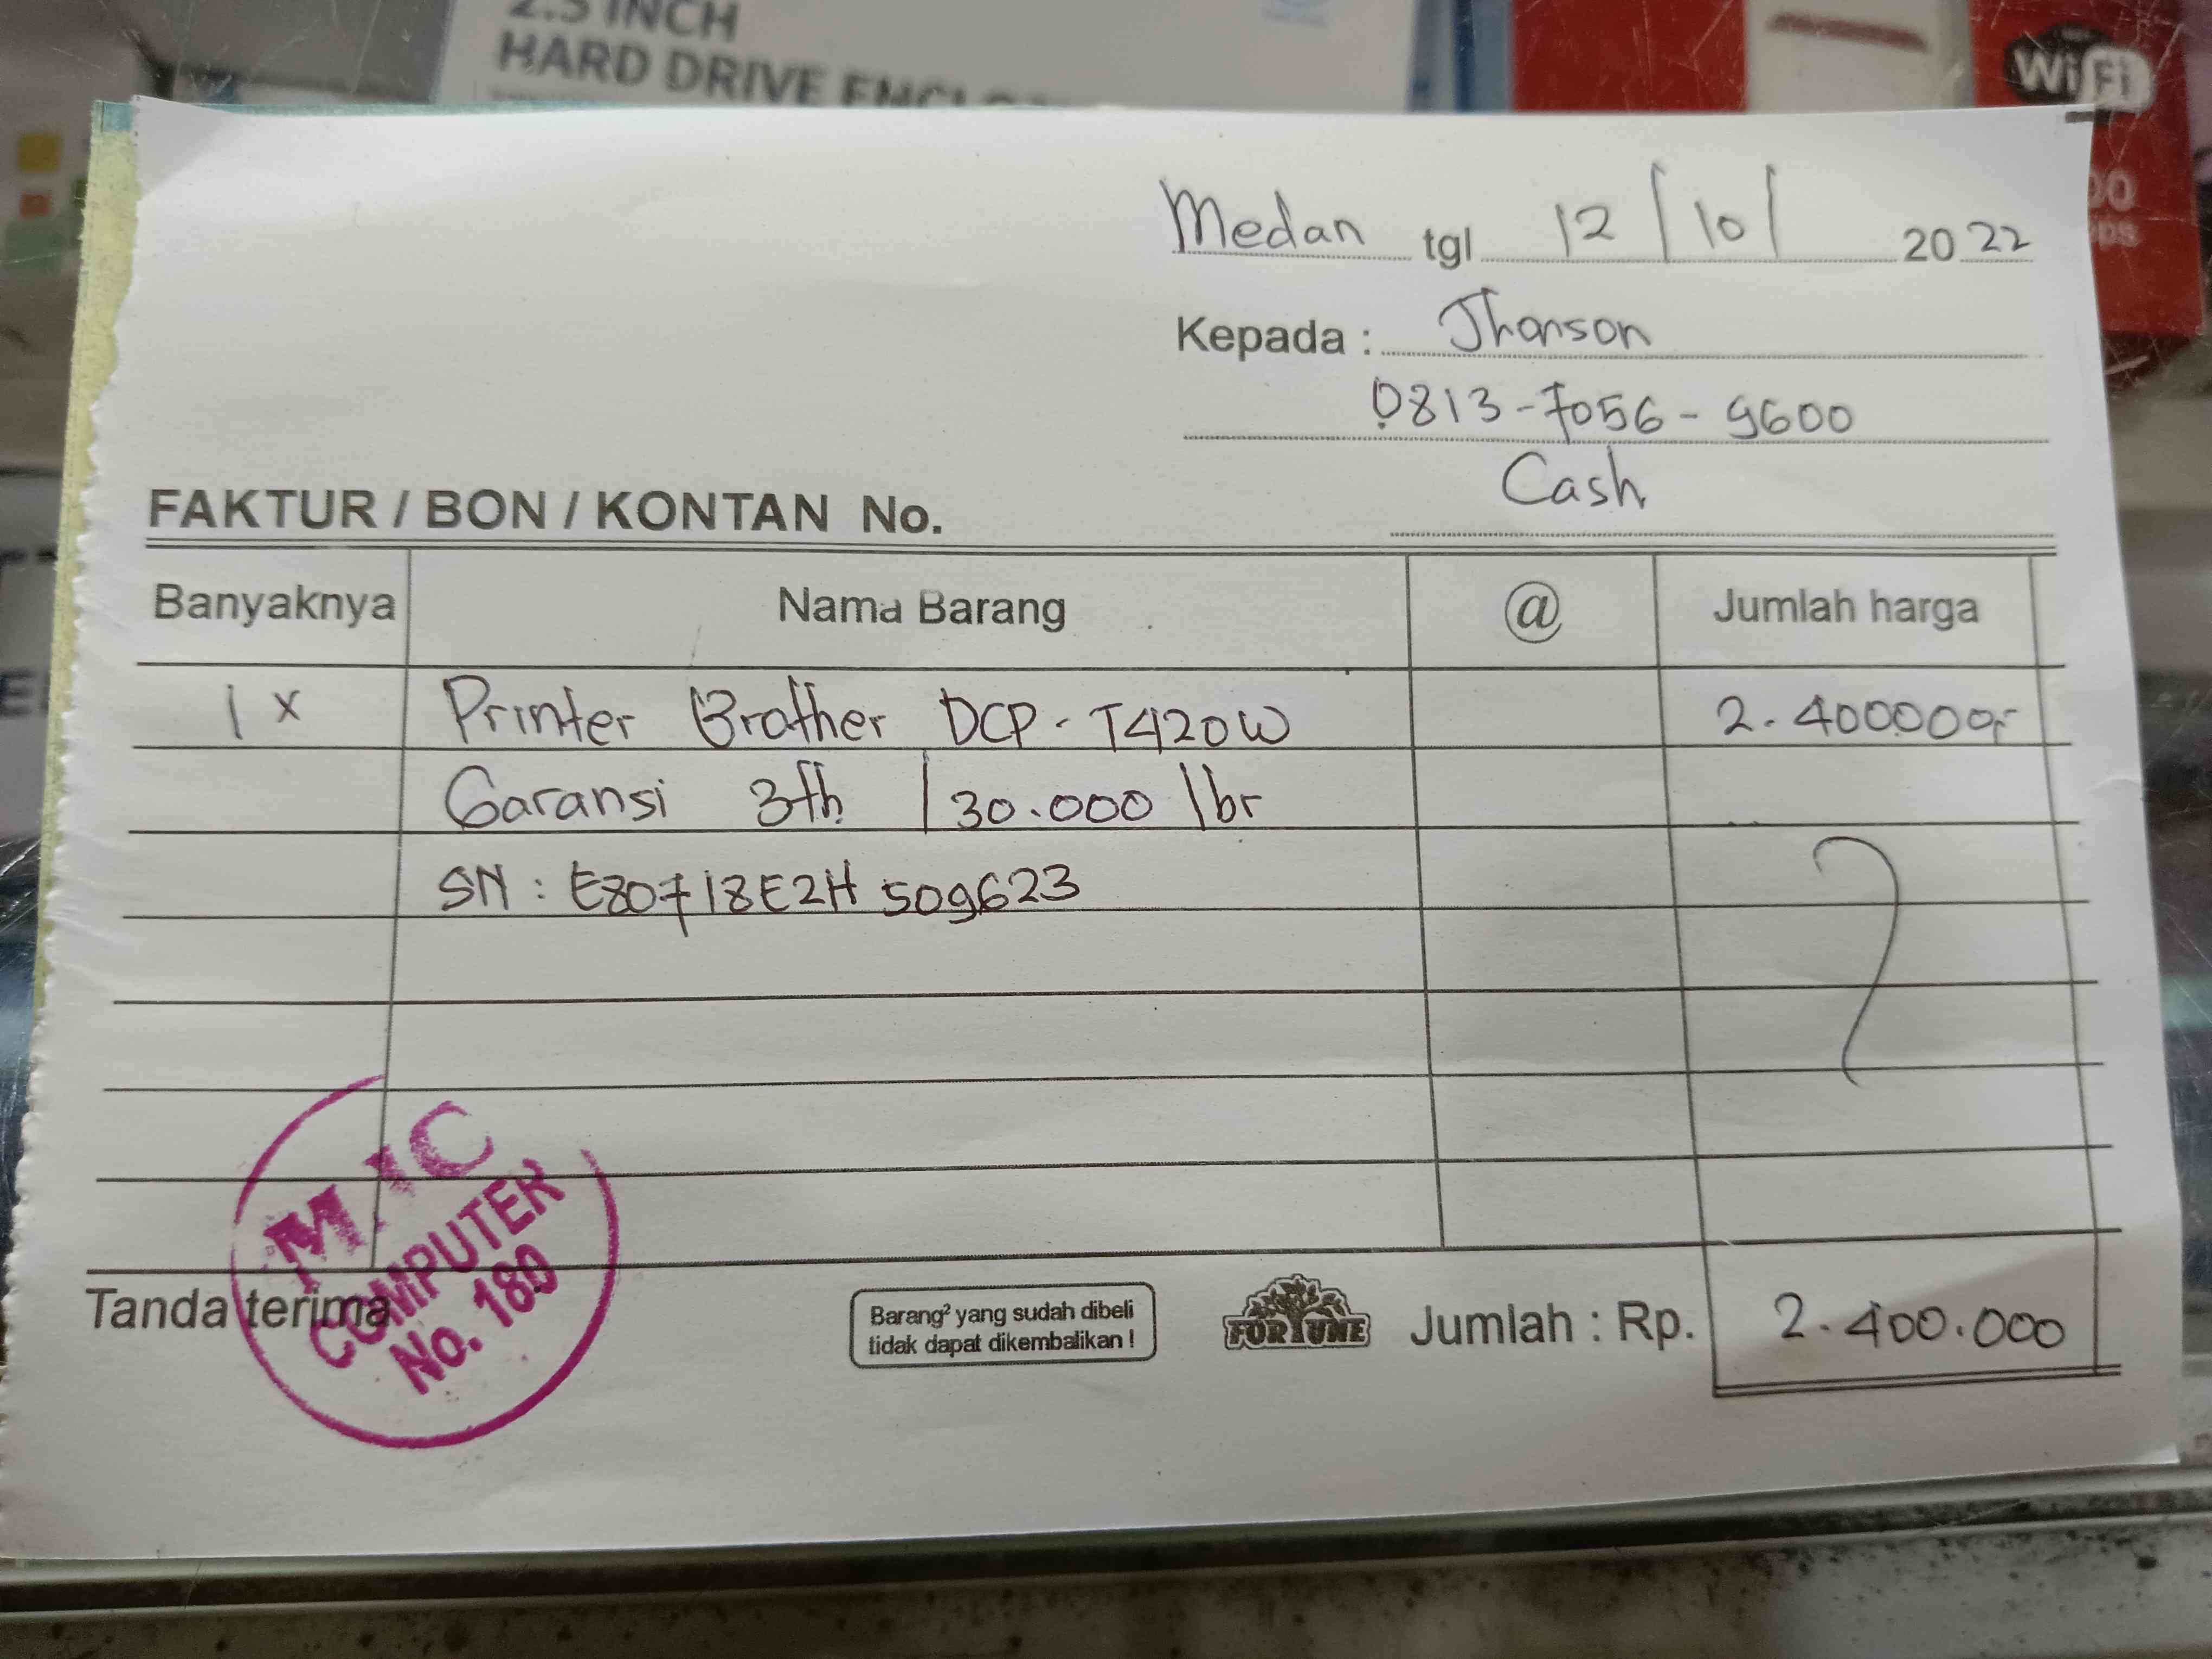 2.5 INCH
HARD DRIVE
WiFi
Medan tgl 12/10/ 2022
Kepada : Jhonson
0813-7056-9600
Cash
FAKTUR / BON / KONTAN No.
Banyaknya Nama Barang @ Jumlah harga
1 x Printer Brother DCP-T420W 2.400.000,-
Garansi 3th / 30.000 lbr
SN : E80718E2H509623
MIC
COMPUTER
No. 180
Tanda terima
Barang² yang sudah dibeli
tidak dapat dikembalikan !
FORTUNE
Jumlah : Rp. 2.400.000